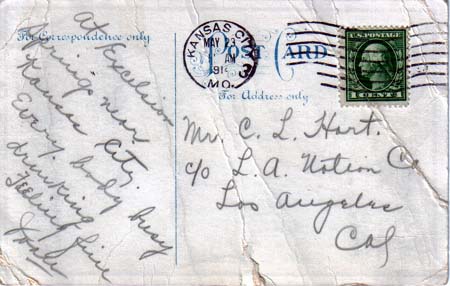 For Correspondence only.
At Excelsior
Springs near
Kansas City.
Every body busy
drinking
Feeling fine
POST CARD
For Address only
KANSAS CITY
MAY 23
AM
191
MO.
3
U.S. POSTAGE
1 CENT 1
Mr. C. L. Hart.
c/o L. A. Notion Co
Los Angeles
Cal